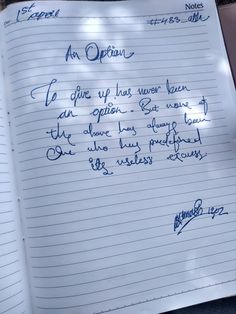 1st
April
Notes
An Option
To give up has never been
an option. But none of
the above has always been
One who has predefined
its useless excuses